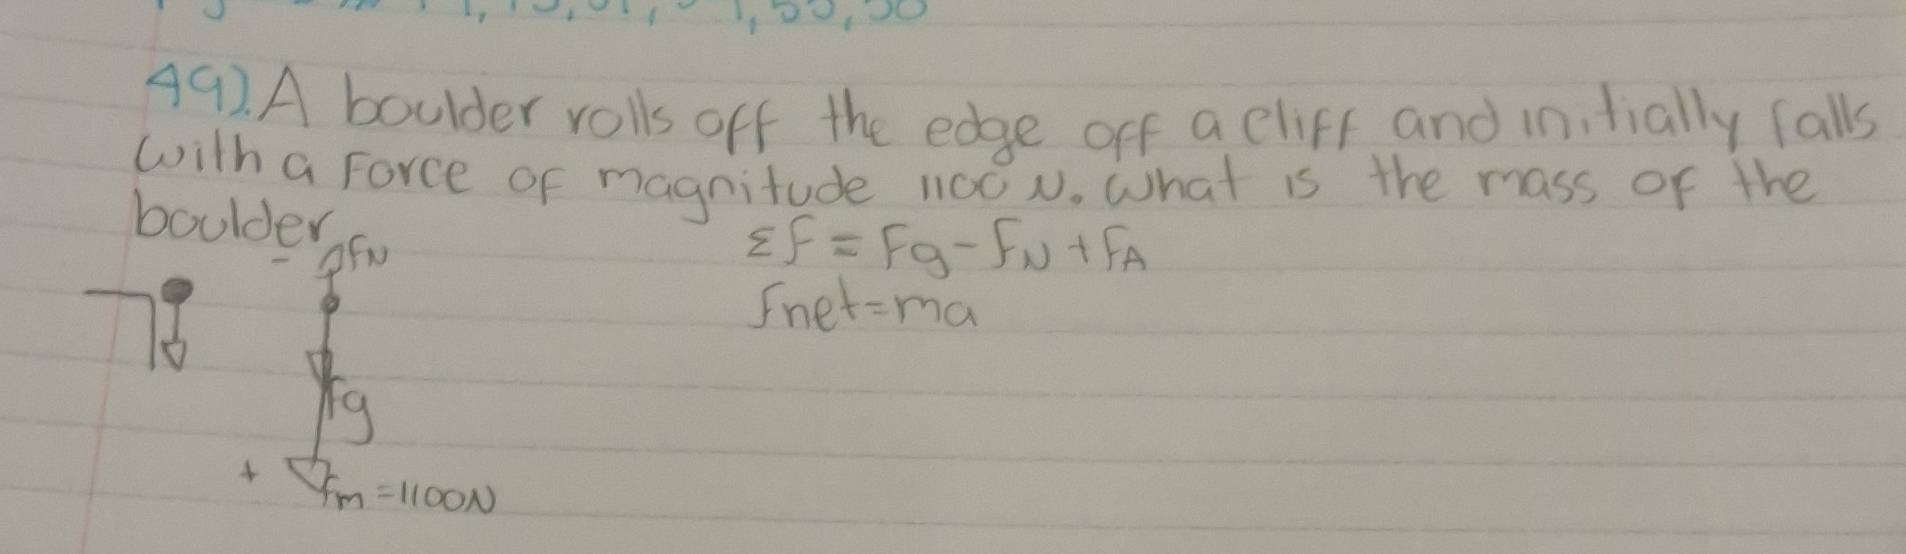 49). A boulder rolls off the edge off a cliff and initially falls
with a Force of magnitude 1100 N. What is the mass of the
boulder
- FN
ΣF = Fg - FN + FA
Fnet = ma
Fg
+ Fm = 1100N